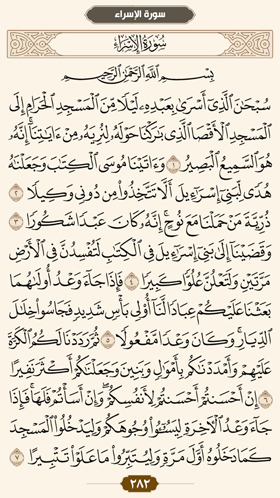 سورة الإسراء
سُورَةُ الإِسۡرَاءِ
بِسۡمِ ٱللَّهِ ٱلرَّحۡمَٰنِ ٱلرَّحِيمِ
سُبۡحَٰنَ ٱلَّذِيٓ أَسۡرَىٰ بِعَبۡدِهِۦ لَيۡلٗا مِّنَ ٱلۡمَسۡجِدِ ٱلۡحَرَامِ إِلَى
ٱلۡمَسۡجِدِ ٱلۡأَقۡصَا ٱلَّذِي بَٰرَكۡنَا حَوۡلَهُۥ لِنُرِيَهُۥ مِنۡ ءَايَٰتِنَآۚ إِنَّهُۥ
هُوَ ٱلسَّمِيعُ ٱلۡبَصِيرُ ١ وَءَاتَيۡنَا مُوسَى ٱلۡكِتَٰبَ وَجَعَلۡنَٰهُ
هُدٗى لِّبَنِيٓ إِسۡرَٰٓءِيلَ أَلَّا تَتَّخِذُواْ مِن دُونِي وَكِيلٗا ٢
ذُرِّيَّةَ مَنۡ حَمَلۡنَا مَعَ نُوحٍۚ إِنَّهُۥ كَانَ عَبۡدٗا شَكُورٗا ٣
وَقَضَيۡنَآ إِلَىٰ بَنِيٓ إِسۡرَٰٓءِيلَ فِي ٱلۡكِتَٰبِ لَتُفۡسِدُنَّ فِي ٱلۡأَرۡضِ
مَرَّتَيۡنِ وَلَتَعۡلُنَّ عُلُوّٗا كَبِيرٗا ٤ فَإِذَا جَآءَ وَعۡدُ أُولَىٰهُمَا
بَعَثۡنَا عَلَيۡكُمۡ عِبَادٗا لَّنَآ أُوْلِي بَأۡسٖ شَدِيدٖ فَجَاسُواْ خِلَٰلَ
ٱلدِّيَارِۚ وَكَانَ وَعۡدٗا مَّفۡعُولٗا ٥ ثُمَّ رَدَدۡنَا لَكُمُ ٱلۡكَرَّةَ
عَلَيۡهِمۡ وَأَمۡدَدۡنَٰكُم بِأَمۡوَٰلٖ وَبَنِينَ وَجَعَلۡنَٰكُمۡ أَكۡثَرَ نَفِيرًا
٦ إِنۡ أَحۡسَنتُمۡ أَحۡسَنتُمۡ لِأَنفُسِكُمۡۖ وَإِنۡ أَسَأۡتُمۡ فَلَهَاۚ فَإِذَا
جَآءَ وَعۡدُ ٱلۡأٓخِرَةِ لِيَسُـُٔواْ وُجُوهَكُمۡ وَلِيَدۡخُلُواْ ٱلۡمَسۡجِدَ
كَمَا دَخَلُوهُ أَوَّلَ مَرَّةٖ وَلِيُتَبِّرُواْ مَا عَلَوۡاْ تَتۡبِيرًا ٧
٢٨٢